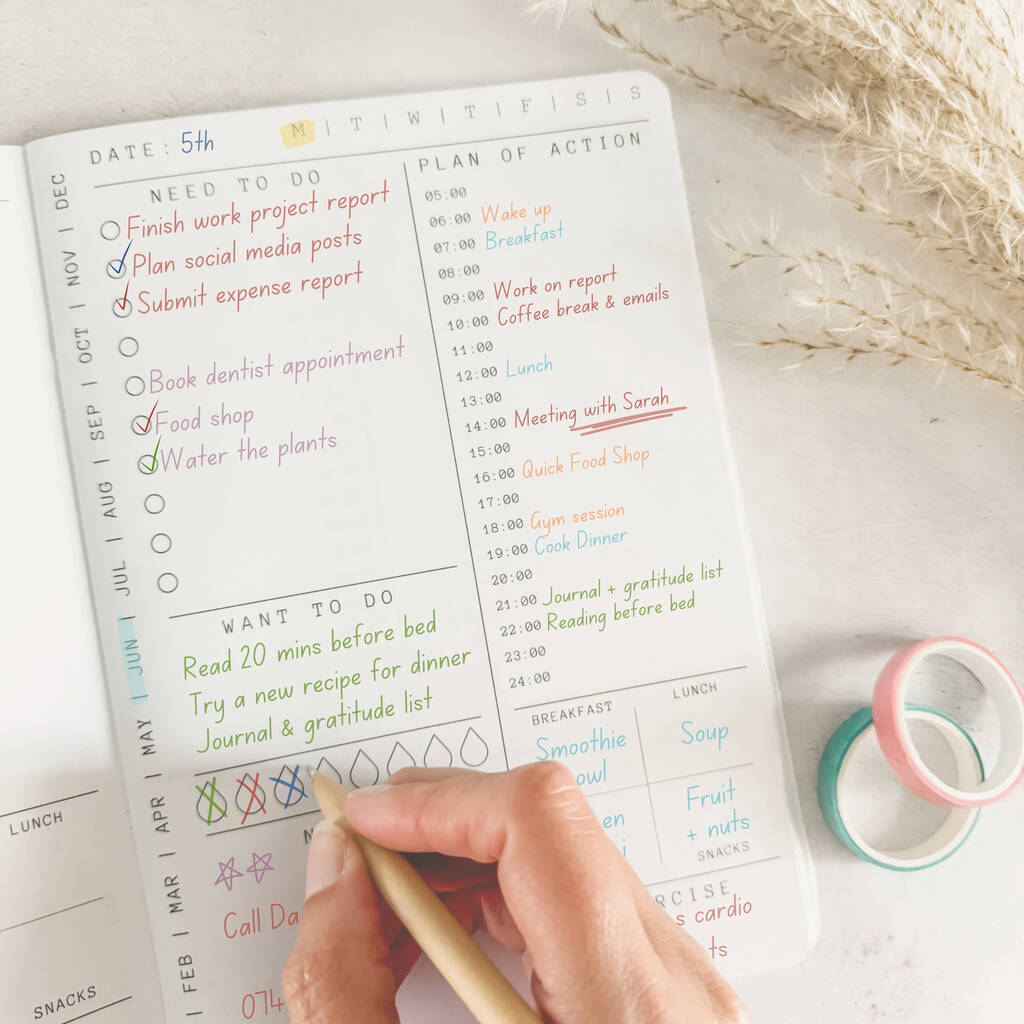 DATE: 5th
M | T | W | T | F | S | S
NEED TO DO
Finish work project report
Plan social media posts
Submit expense report
Book dentist appointment
Food shop
Water the plants
WANT TO DO
Read 20 mins before bed
Try a new recipe for dinner
Journal & gratitude list
Call
074
PLAN OF ACTION
05:00
06:00 Wake up
07:00 Breakfast
08:00
09:00 Work on report
10:00 Coffee break & emails
11:00
12:00 Lunch
13:00
14:00 Meeting with Sarah
15:00
16:00 Quick Food Shop
17:00
18:00 Gym session
19:00 Cook Dinner
20:00
21:00 Journal + gratitude list
22:00 Reading before bed
23:00
24:00
BREAKFAST
Smoothie
LUNCH
Soup
Fruit
+ nuts
SNACKS
cardio
| FEB | MAR | APR | MAY | JUN | JUL | AUG | SEP | OCT | NOV | DEC
LUNCH
SNACKS